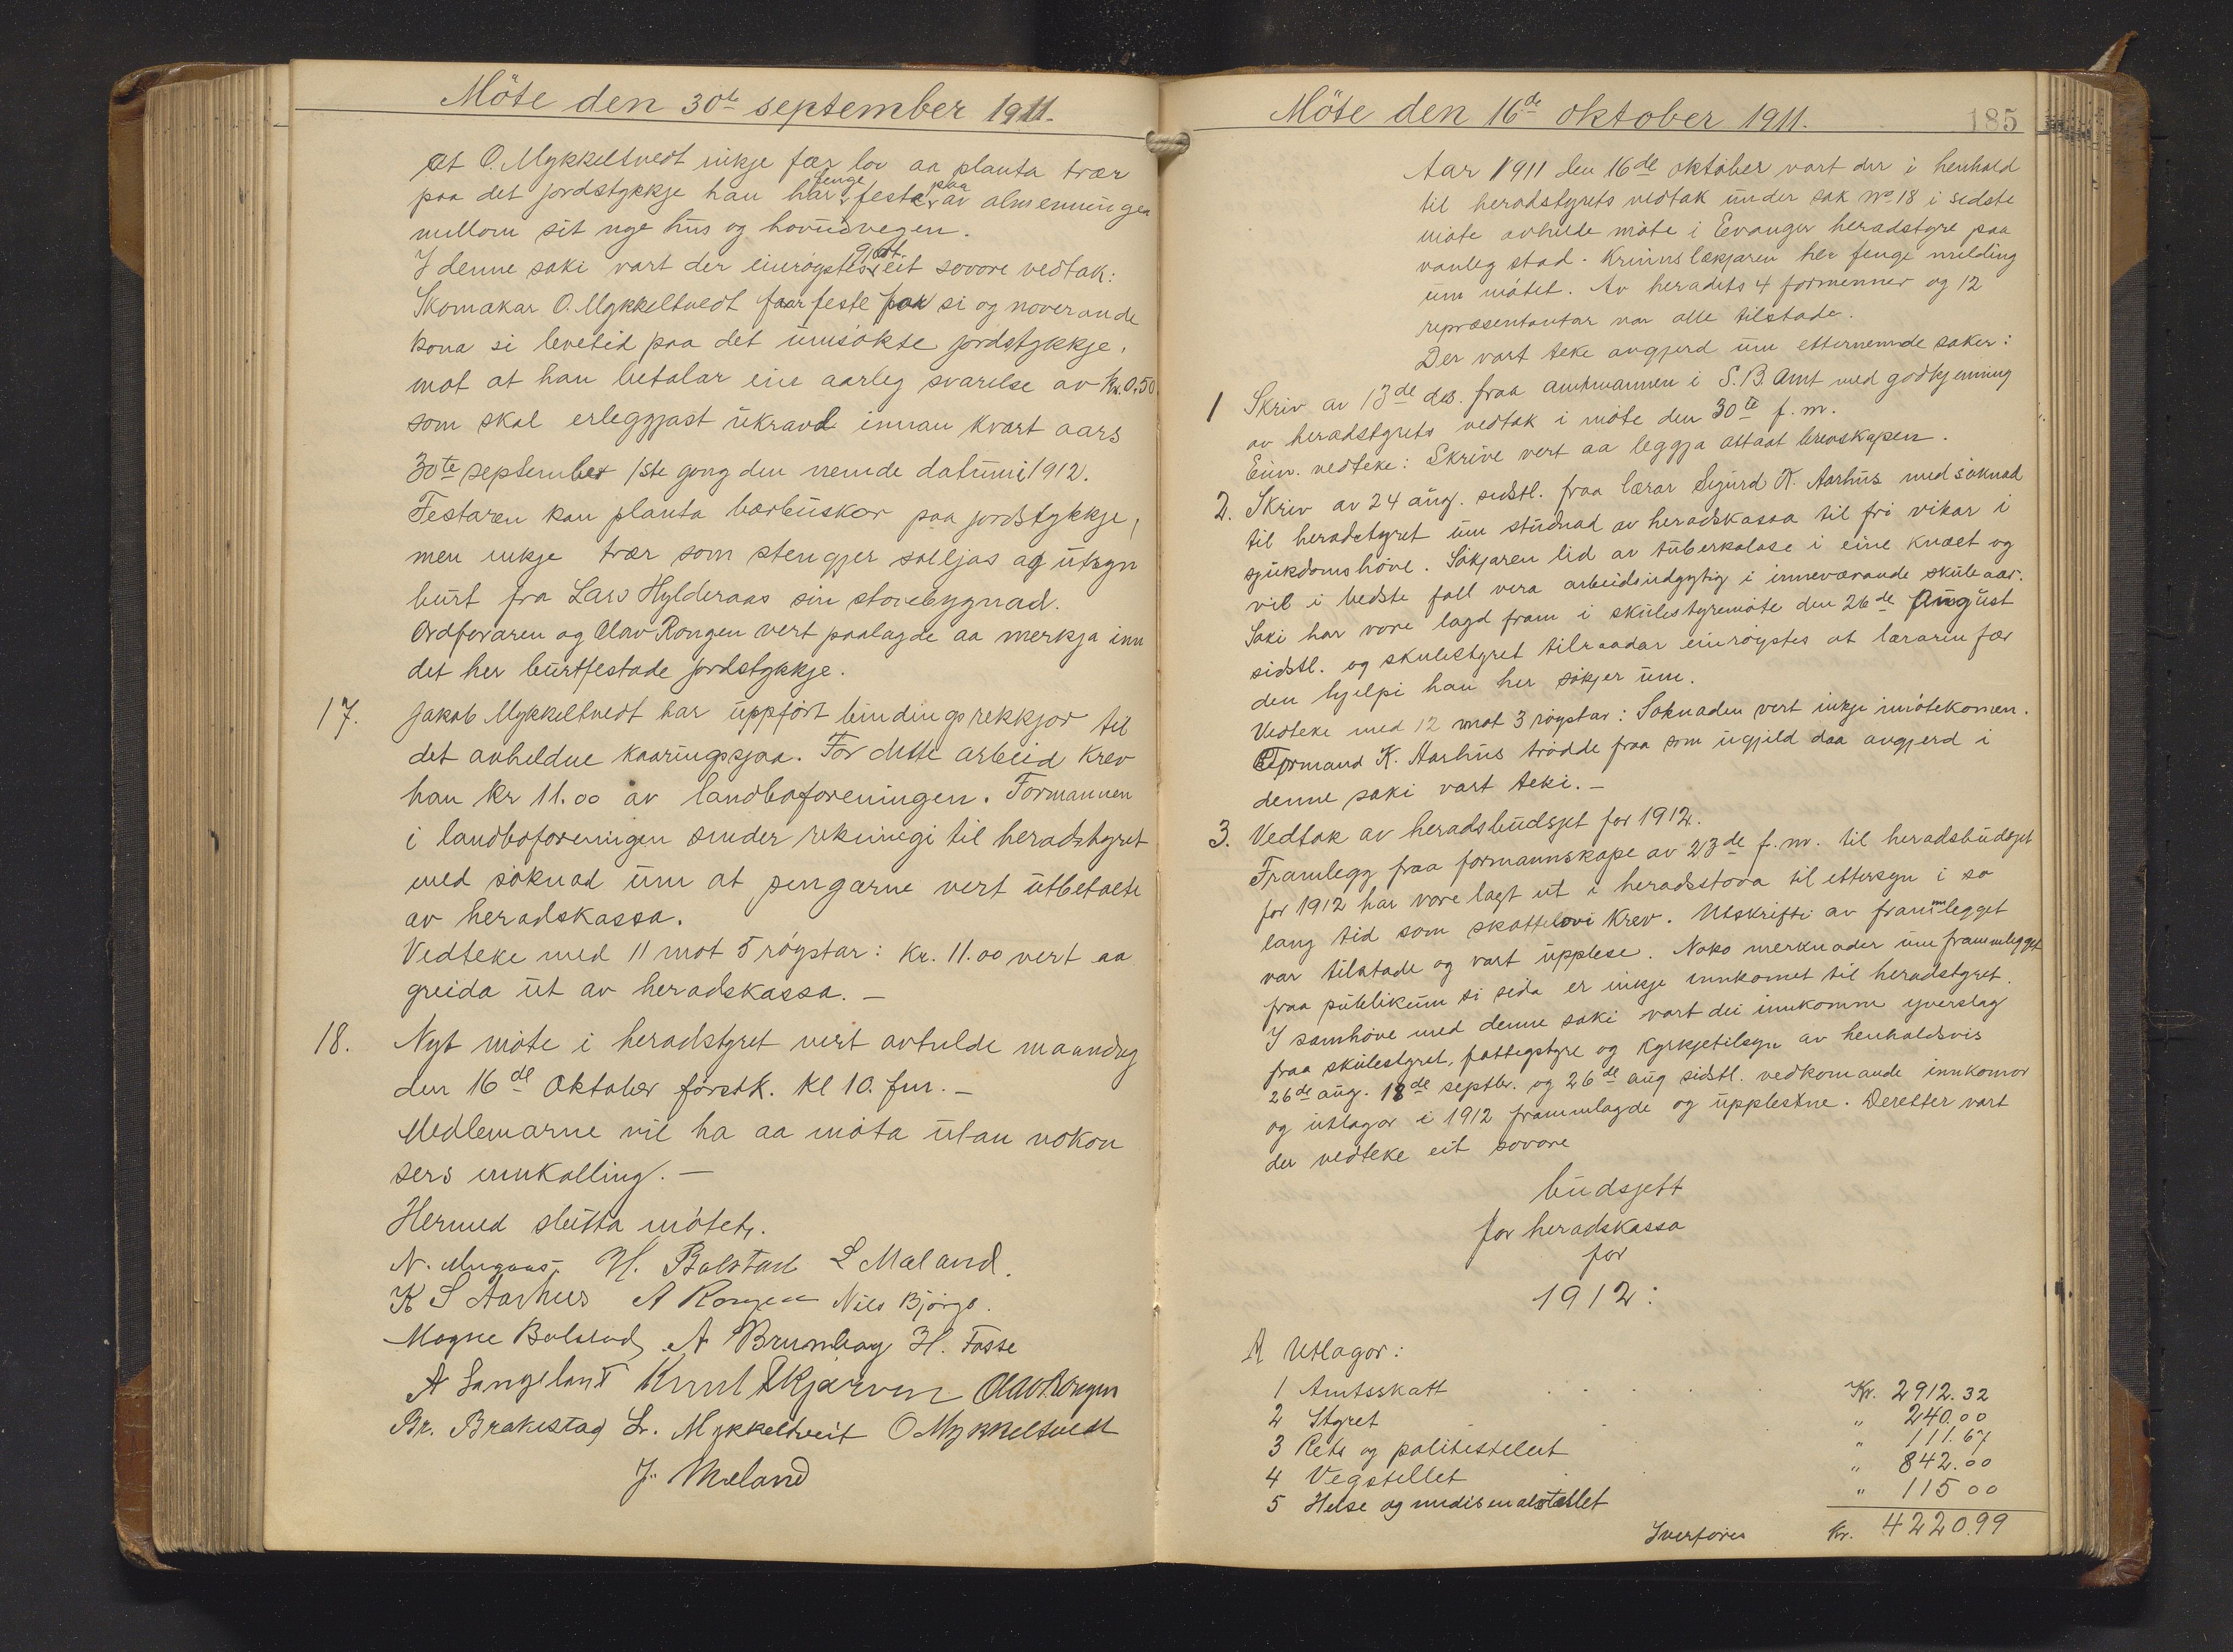 Möte den 30te september 1911.
at O. Mykkeltvedt inkje fær lov aa planta trær
paa det jordstykkje han har fenge feste paa av almenningen
millom sit nye hus og hovudvegen.
I denne saki vart der einrøystes gjort eit sovore vedtak:
Skomakar O. Mykkeltvedt faar feste for si og noverande
kona si levetid paa det umsökte jordstykkje,
mot at han betalar ein aarleg svarelse av Kr. 0,50
som skal erleggjast ukravd innan kvart aars
30te september 1ste gong den nemde datum i 1912.
Festaren kan planta bærbuskar paa jordstykkje,
men inkje trær som stengjer solljos og utsyn
burt fra Lars Hylderaas sin stovebygnad.
Ordföraren og Olav Rongen vert paalagde aa merkja inn
det her burtfestade jordstykkje.
17. Jakob Mykkeltvedt har uppfört bindingsrekkjor til
det avheldne kaaringssjaa. For dette arbeid krev
han kr 11.00 av landboforeningen. Formannen
i landboforeningen sender rekningi til heradstyret
med söknad um at pengarne vert utbetalte
av heradskassa.
Vedteke med 11 mot 5 röystar: Kr. 11.00 vert aa
greida ut av heradskassa. –
18. Nyt möte i heradstyret vert avhulde maandag
den 16de Oktober förstk. kl 10. fm. –
Medlemarne vil ha aa möta utan nokon
sers innkalling. –
Hermed slutta mötet.
N. Mugaas. H. Bolstad L Mæland.
K S Aarhus A Rongen Nils Björgo.
Magne Bolstad A Brunborg H. Fosse
A Langeland Knut Skjerven Olav Rongen
Br. Brakestad L. Mykkeltveit O Mykkeltvedt
J. Mæland
Möte den 16de oktober 1911. 185
Aar 1911 den 16de oktober vart der i henhold
til heradstyrets vedtak under sak No 18 i sidste
möte avhulde möte i Evanger heradstyre paa
vanleg stad. Krinnslækjaren her fenge melding
um mötet. Av heradets 4 formenner og 12
repræsentantar var alle tilstade.
Der vart teke avgjerd um etternemde saker:
1 Skriv av 13de ds. fraa amtmannen i S. B. Amt med godkjenning
av heradstyrets vedtak i möte den 30te f. m.
Einr. vedteke: Skrive vert aa leggja attaat brevskapen.
2. Skriv av 24 aug. sidstl. fraa lærar Sigurd K. Aarhus med söknad
til heradstyret um studnad av heradskassa til fri vikar i
sjukdomshöve. Sökjaren lid av tuberkolose i eine knæet og
vil i bedste fall vera arbeidsudgytig i inneværande skuleaar.
Saki har vore lagd fram i skulestyremöte den 26de August
sidstl. og skulestyret tilraadar einröystes at læraren fær
den hjelpi han her sökjer um.
Vedteke med 12 mot 3 röystar: Söknaden vert inkje imötekomen.
Formand K. Aarhus trödde fraa som ugjild daa avgjerd i
denne saki vart teki. –
3. Vedtak av heradsbudsjet for 1912.
Framlegg fraa formannskape av 23de f. m. til heradsbudsjet
for 1912 har vore lagt ut i heradsstova til ettersyn i so
lang tid som skattelovi krev. Utskrifti av frammlegget
var tilstade og vart upplese. Noko merknader um frammlegget
fraa publikum si sida er inkje innkomet til heradstyret.
I samhöve med denne saki vart dei innkomne yverslag
fraa skulestyret, fattigstyre og Kyrkjetilsyn av henholdsvis
26de aug. 18de septbr. og 26de aug sidstl. vedkomande innkomor
og utlagor i 1912 frammlagde og upplestne. Deretter vart
der vedteke eit sovore
budsjett
for heradskassa
for
1912:
A Utlagor:
1 Amtsskatt Kr. 2912.32
2 Styret " 240.00
3 Rets og politistellet " 111.67
4 Vegstellet " 842.00
5 Helse og medisinalstellet " 115 00
Yverföres Kr. 4220.99